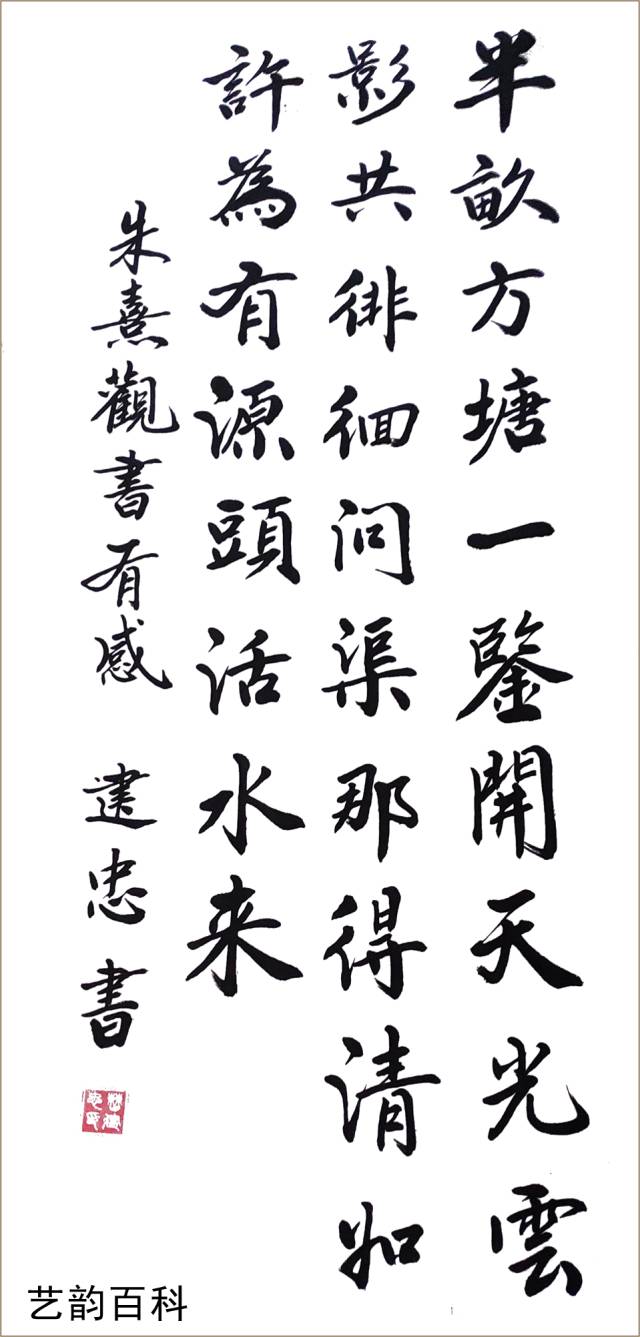 半畝方塘一鑒開天光雲
影共徘徊問渠那得清如
許為有源頭活水来
朱熹觀書有感 建忠書
艺韵百科